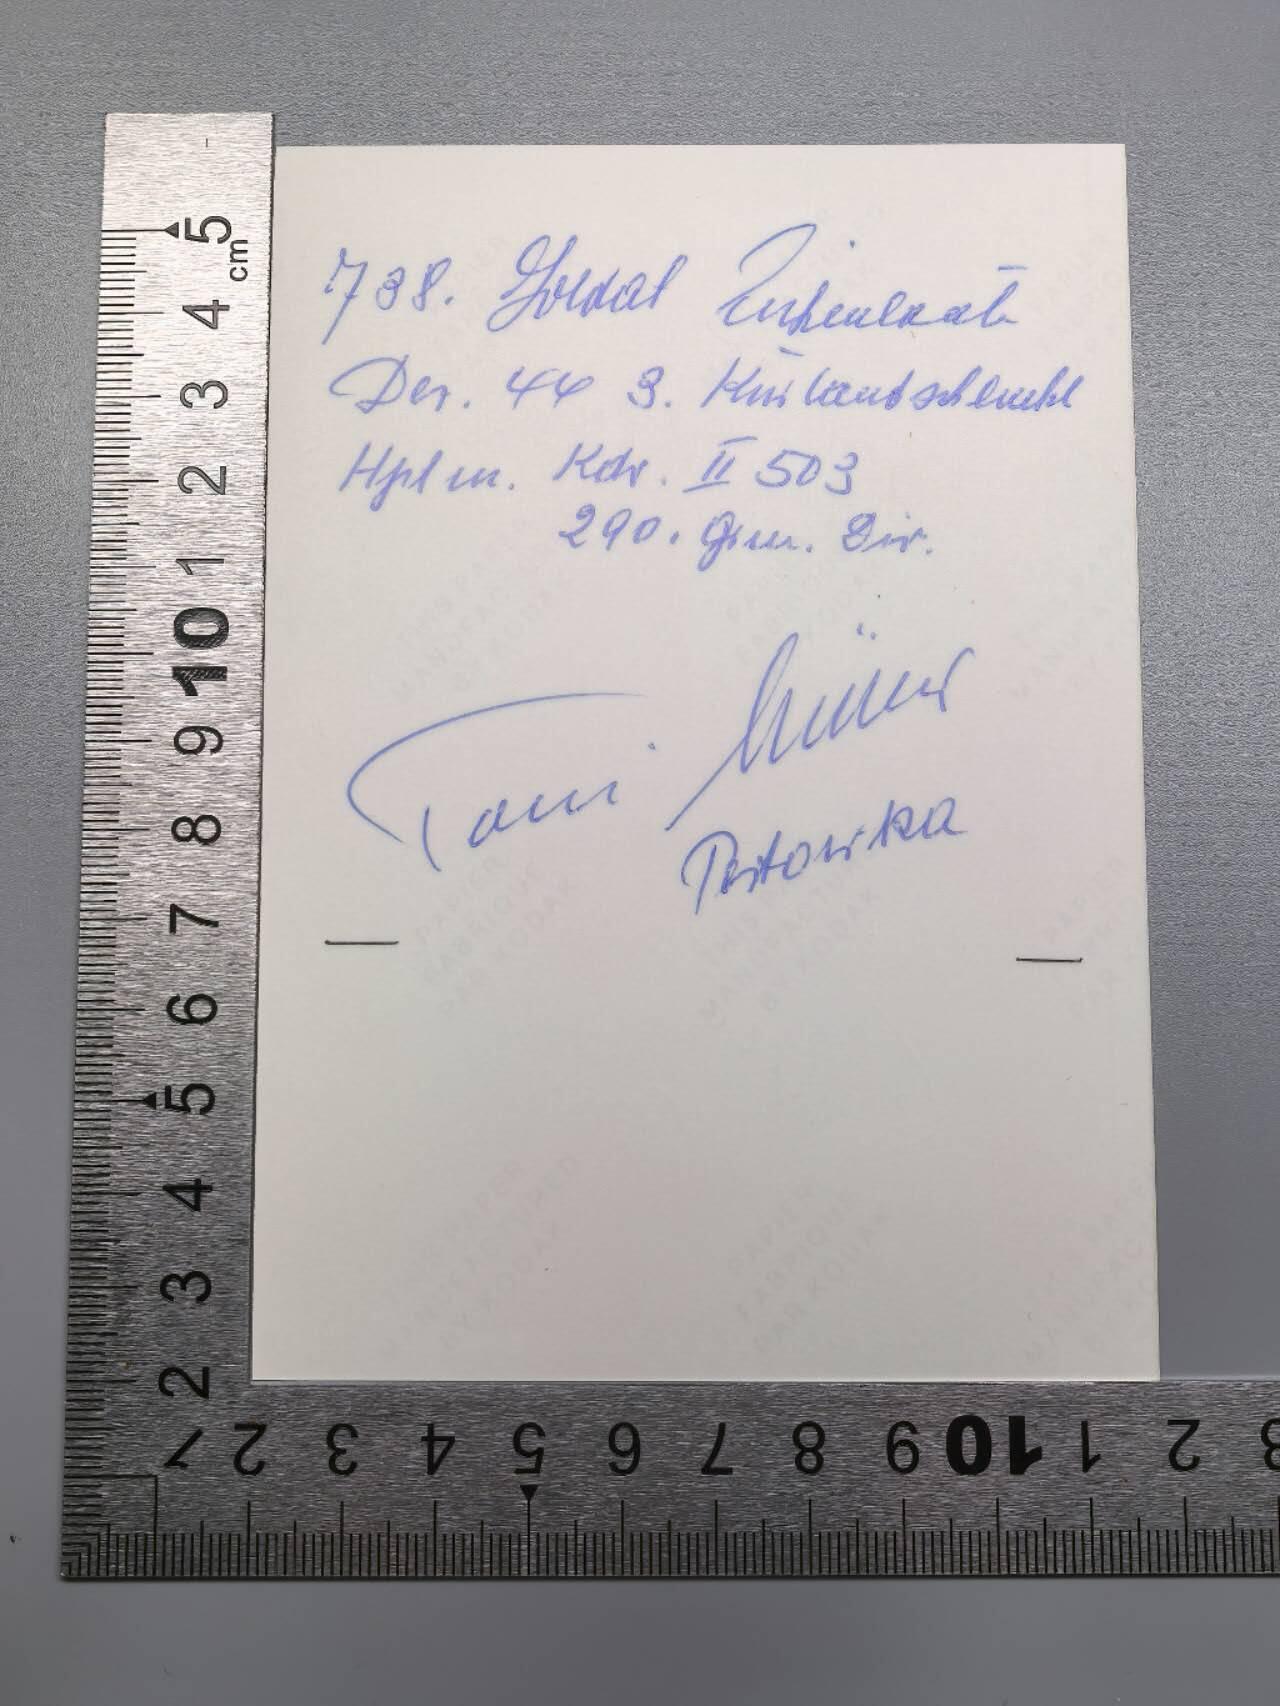 738. Soldat Eichenlaub
Dez. 44 3. Kurlandschlacht
Hptm. Kdr. II 503
290. Gren. Div.
Toni Müller
THIS PAPER
MANUFACTURED
BY KODAK
PAPIER
FABRIQUE
PAR KODAK
5
cm
4
3
2
1
10
9
8
7
6
5
4
3
2
1 2 3 4 5 6 7 8 9 10 1 2 3